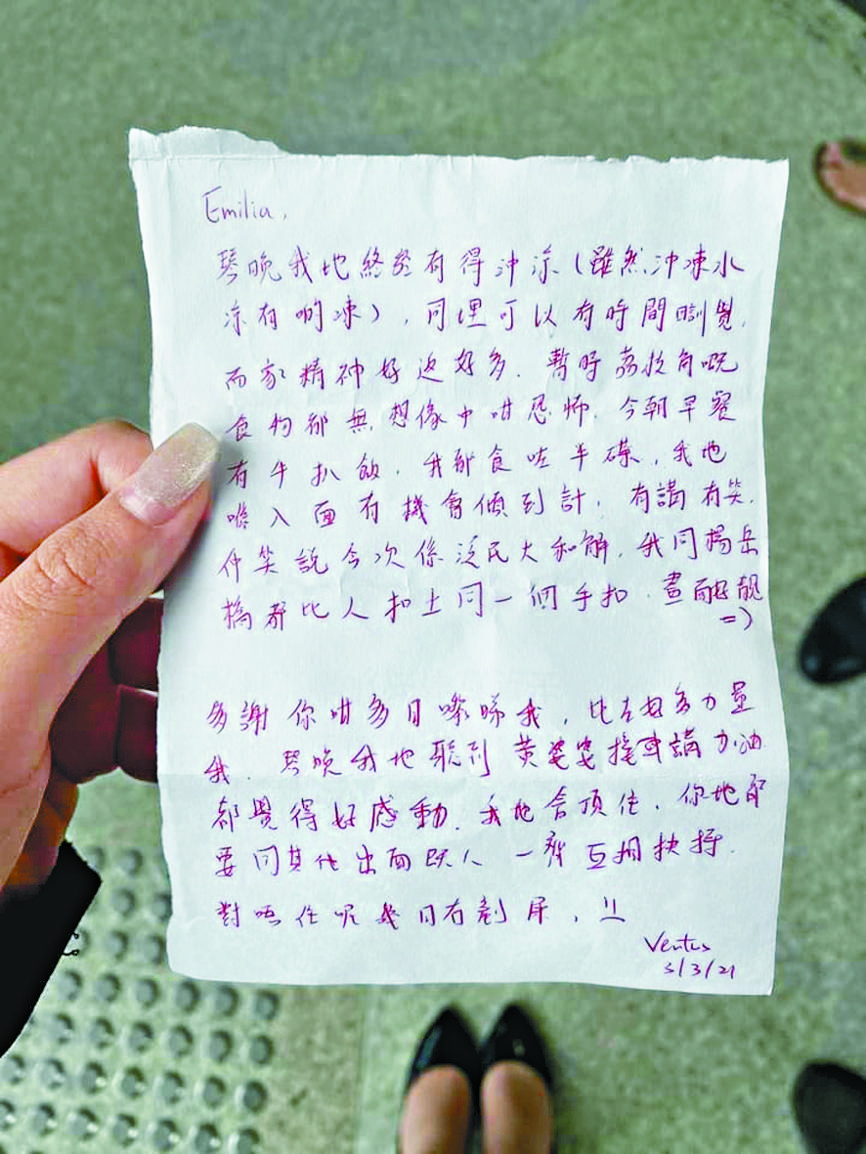 Emilia,
琴晚我地終於有得沖涼（雖然沖凍水
涼有啲凍），同埋可以有時間瞓覺，
而家精神好返好多。暫時荔枝角嘅
食物都無想像中咁恐怖，今朝早餐
有牛扒飯，我都食咗半碟，我地
喺入面有機會傾到計，有講有笑，
仲笑說今次係泛民大和解，我同楊岳
橋都比人扣上同一個手扣，畫面好靚
=)
多謝你咁多日嚟睇我，比左好多力量
我。琴晚我地聽到黃婆婆揸車講加油
都覺得好感動。我地會頂住，你地都
要同其他出面既人一齊互相扶持。
對唔住呢幾日冇剃鬍，!!
Ventus
3/3/21